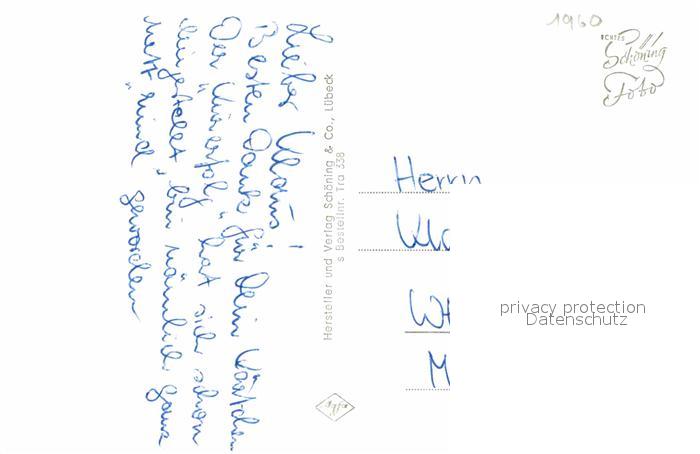 Lieber Klaus!
Besten Dank für Dein Kärtchen
Der "Kurerfolg" hat sich schon
eingestellt, bin nämlich ganz
nett "rund" geworden
Hersteller und Verlag Schöning & Co., Lübeck
s Bestellnr. Tra 338
1960
ECHTES
Schöning
Foto
Herrn
M
Agfa
privacy protection
Datenschutz